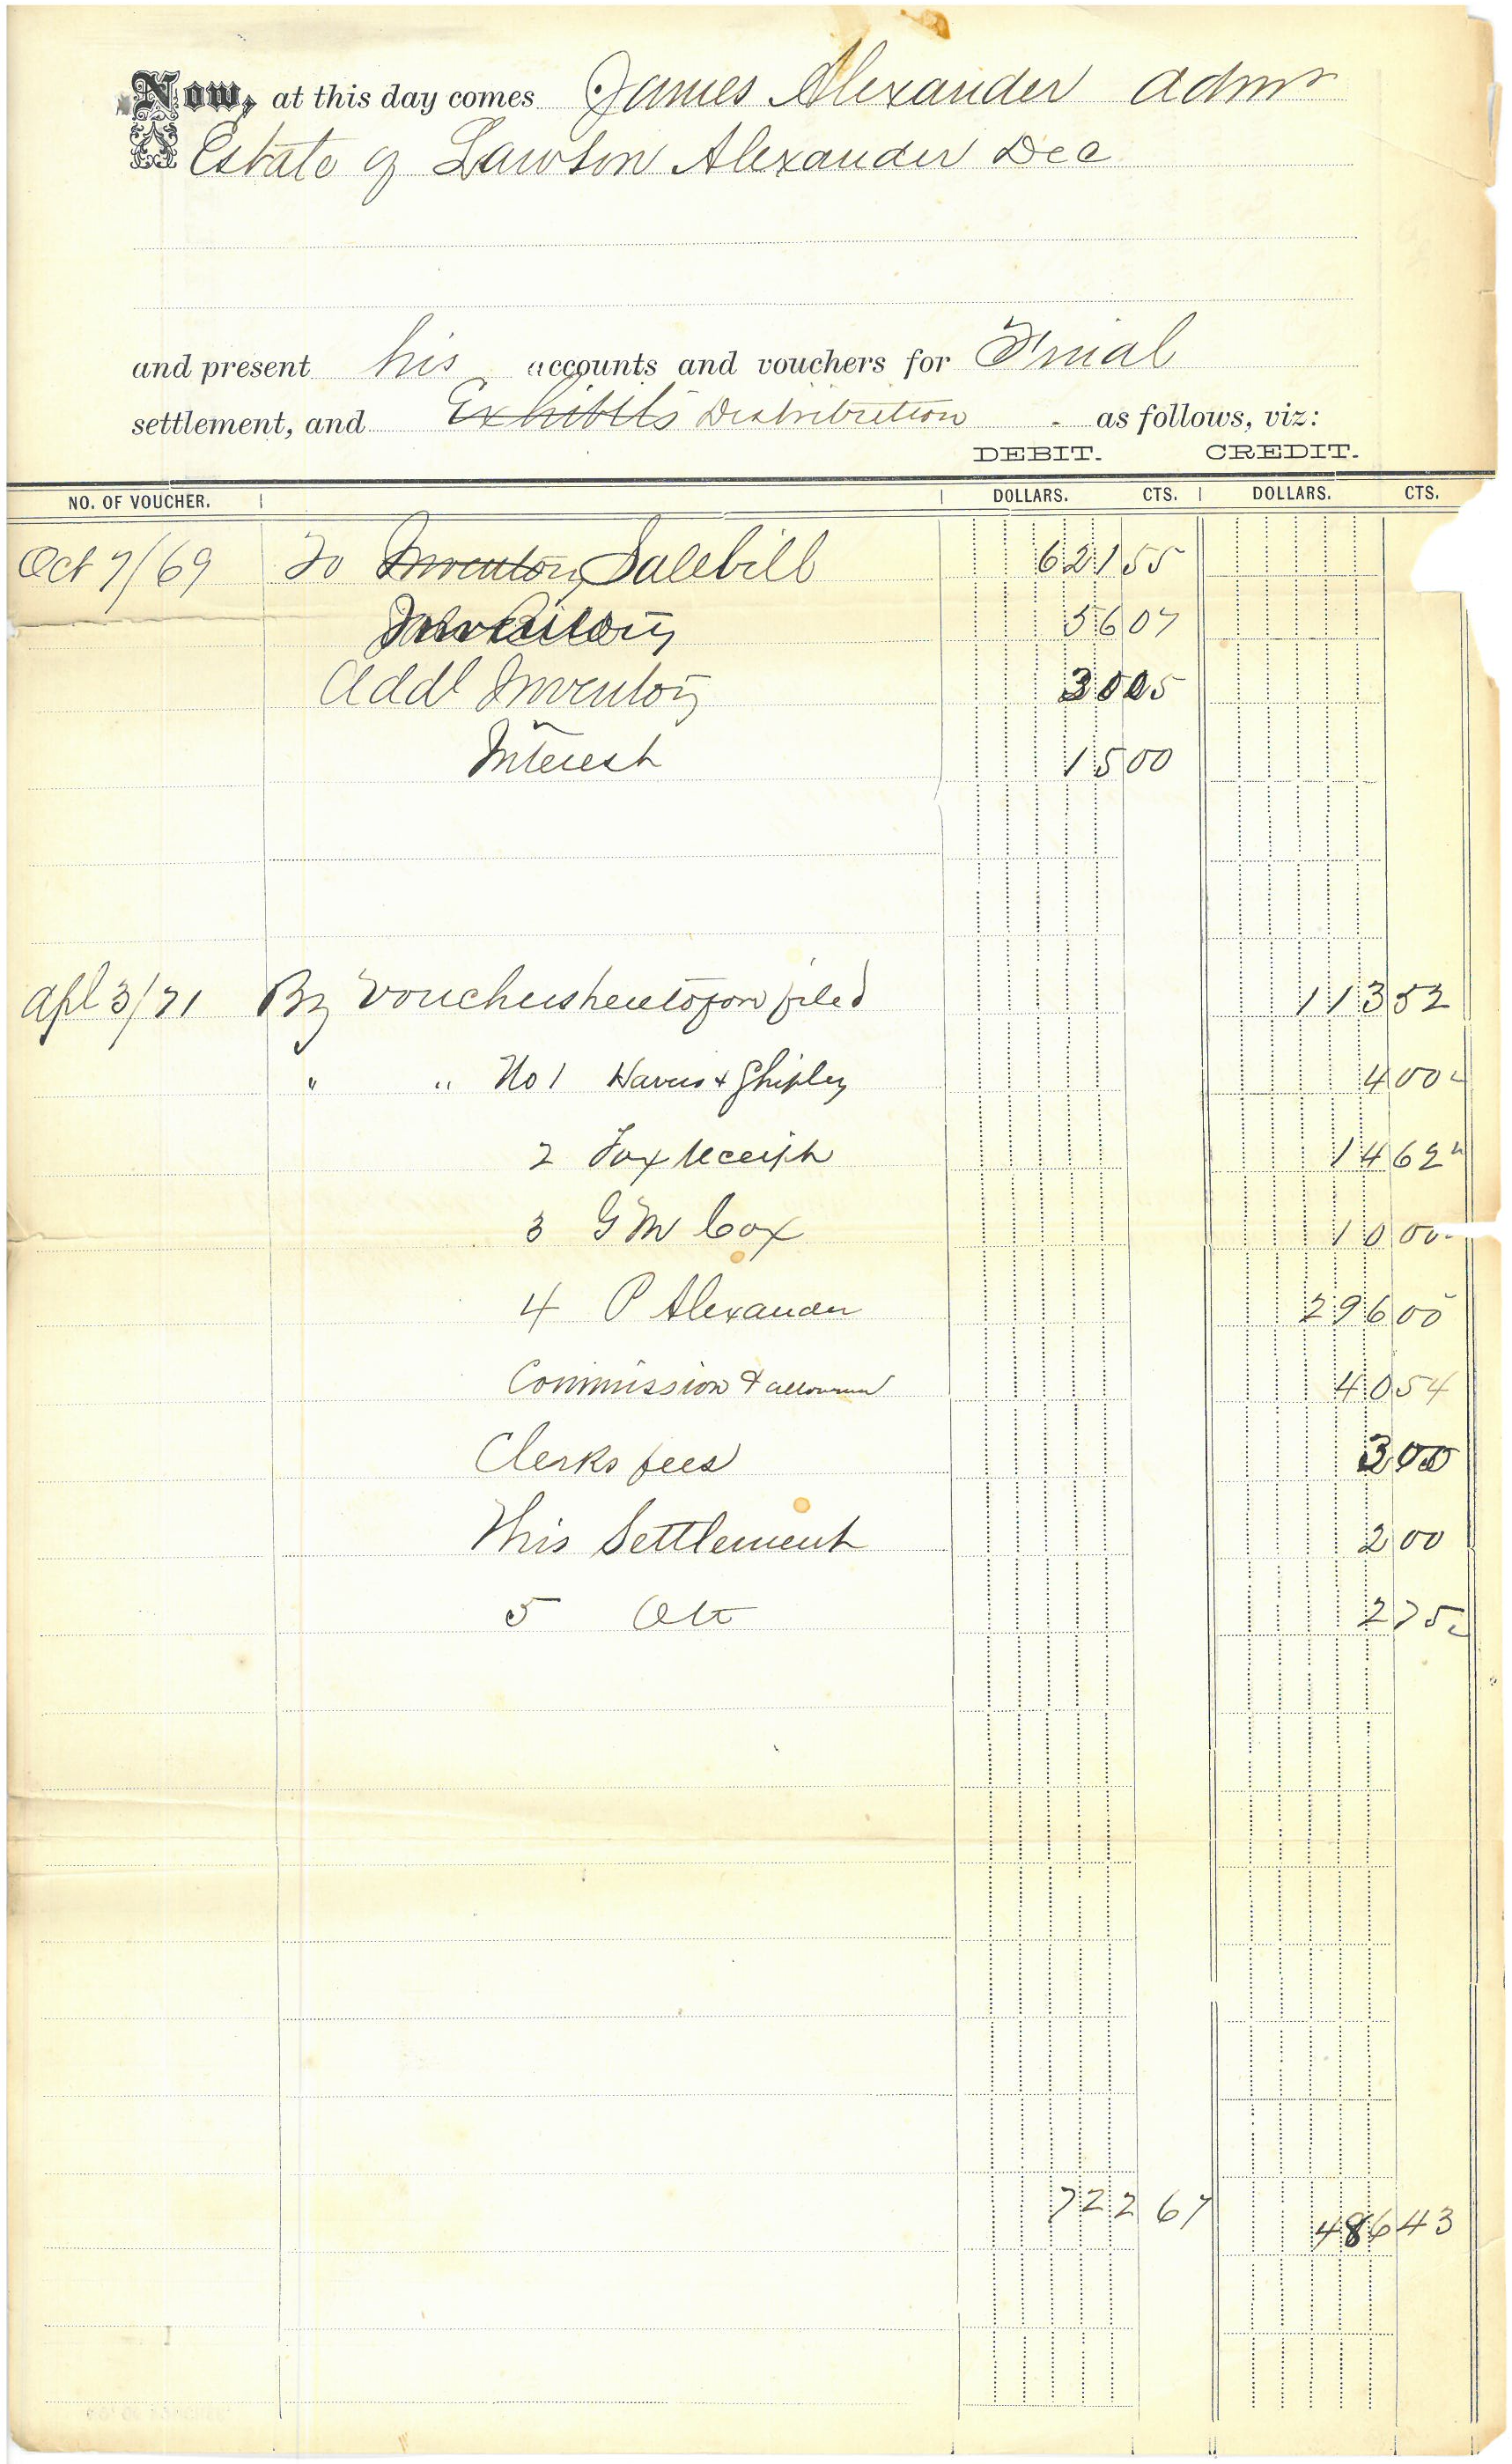 Now, at this day comes James Alexander Admr
Estate of Lawson Alexander Dec
and present his accounts and vouchers for Final
settlement, and Exhibits Distribution as follows, viz:
DEBIT. CREDIT.
NO. OF VOUCHER. DOLLARS. CTS. DOLLARS. CTS.
Oct 7/69 To Inventory Salebill 621 55
Inventory 56 07
Addl Inventory 30 05
Interest 15 00
Apl 3/71 By Vouchers heretofore filed 113 52
" " No 1 Harris & Shipley 4 00
2 Tax receipt 14 62
3 G M Cox 10 00
4 P Alexander 296 00
Commission & allowance 40 54
Clerks fees 3 00
This Settlement 2 00
5 Ott 2 75
722 67 486 43